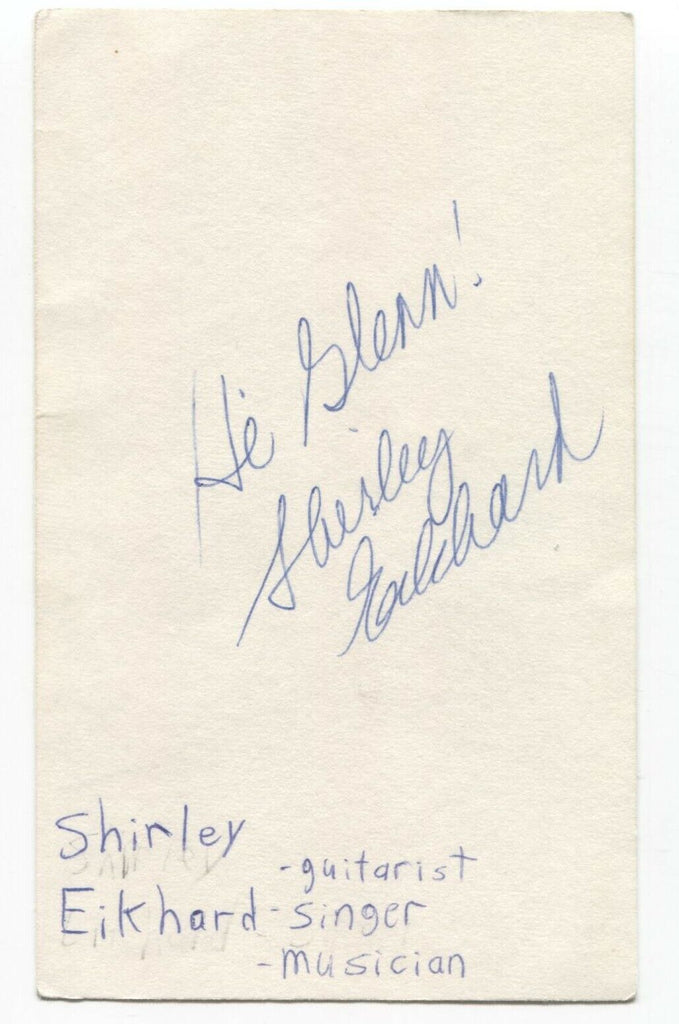 Hi Glenn!
Shirley
Eikhard
Shirley
-guitarist
Eikhard-singer
-musician